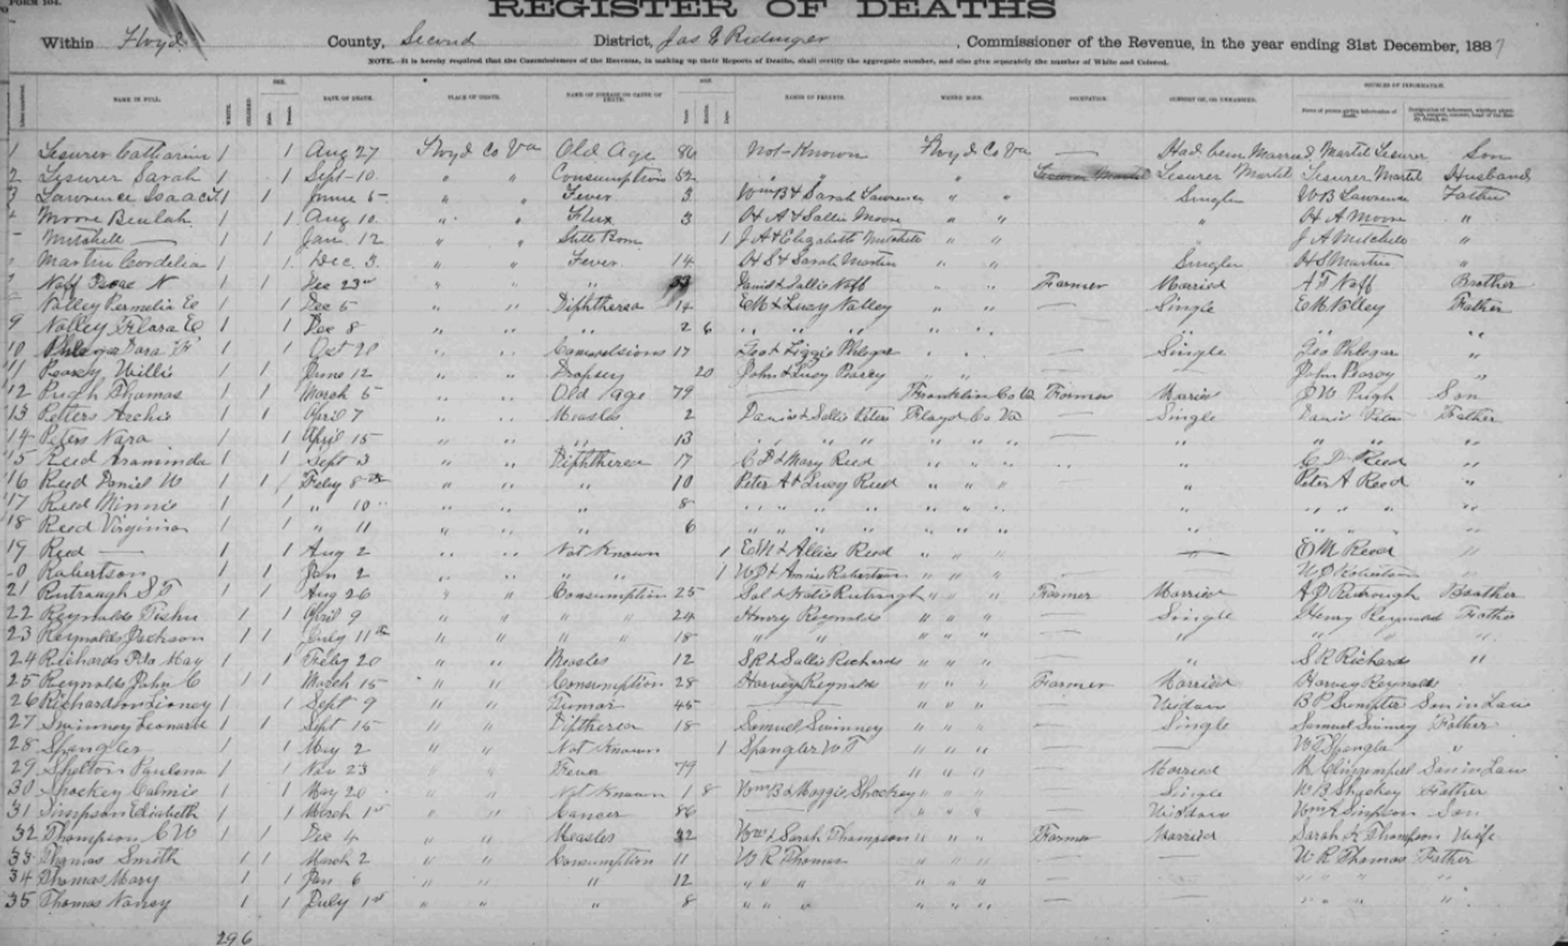 FORM 104.
REGISTER OF DEATHS
Within Floyd County, Second District, Jas E Ridinger, Commissioner of the Revenue, in the year ending 31st December, 1887
NOTE.—It is hereby required that the Commissioners of the Revenue, in making up their Reports of Deaths, shall certify the aggregate number, and also give separately the number of White and Colored.
NAME IN FULL. WHITE. COLORED. SEX. Male. Female. DATE OF DEATH. PLACE OF DEATH. NAME OF DISEASE OR CAUSE OF DEATH. AGE. Years. Months. Days. NAMES OF PARENTS. WHERE BORN. OCCUPATION. CONSORT OF, OR UNMARRIED. SOURCES OF INFORMATION.
1 Lesurer Catharine 1 1 Aug 27 Floyd Co Va Old Age 86 Not-Known Floyd Co Va — Had been Married Martil Lesurer Son
2 Lesurer Sarah 1 1 Sept-10 " " Consumption 52 " " Lesurer Martil Lesurer Martil Husband
3 Lawrence Isaac 1 1 June 5 " " Fever 3 Wm B & Sarah Lawrence " " Single W B Lawrence Father
4 Moore Beulah 1 1 Aug 10 " " Flux 3 H A & Sallie Moore " " " H A Moore "
Mitchell — 1 1 Jan. 12 " " Still Born 1 J A & Elizabeth Mitchell " " J A Mitchell "
Martin Cordelia 1 1 Dec. 3 " " Fever 14 H S & Sarah Martin " " Single H S Martin "
7 Naff Isaac N 1 1 Dec 23rd " " " David & Sallie Naff " " Farmer Married A F Naff Brother
Nolley Permelia E 1 1 Dec 5 " " Diphtherea 14 E M & Lucy Nolley " " — Single E M Nolley Father
9 Nolley Flora E 1 1 Dec 8 " " " 2 6 " " " " " " " " "
10 Phlegar Dora F 1 1 Oct 20 " " Convulsions 17 Geo & Lizzie Phlegar " " — Single Geo Phlegar "
11 Pearcy Willis 1 1 June 12 " " Dropsey 20 John & Lucy Pearcy " " — — John Pearcy "
12 Pugh Thomas 1 1 March 5 " " Old Age 79 — Franklin Co Va Farmer Maried J W Pugh Son
13 Petters Archie 1 1 April 7 " " Measles 2 Daniel & Sallie Peters Floyd Co Va — Single Daniel Peters Father
14 Peters Nora 1 1 April 15 " " " 13 " " " " " " " — " " " "
15 Reed Araminda 1 1 Sept 3 " " Diphtherea 17 C D & Mary Reed " " " " " C D Reed "
16 Reed Daniel W 1 1 Feby 8th " " " 10 Peter A & Lucy Reed " " " " Peter A Reed "
17 Reed Minnie 1 1 " 10 " " " 8 " " " " " " " " " " "
18 Reed Virginia 1 1 " 11 " " " 6 " " " " " " " " " " " "
19 Reed — 1 1 Aug 2 " " Not Known 1 E M & Allice Reed " " " — E M Reed "
Robertson 1 1 Jan 2 " " " " 1 W D & Annie Robertson " " " — — W D Robertson "
21 Rutrough S T 1 1 Aug 26 " " Consumption 25 Sol & Katie Rutrough " " " Farmer Married A D Rutrough Brother
22 Reynolds Tishu 1 1 April 9 " " " " 24 Henry Reynolds " " " — Single Henry Reynolds Father
23 Reynolds Jackson 1 1 July 11th " " " " 18 " " " " " — " " " " "
24 Richards Rila May 1 1 Feby 20 " " Measles 12 S R & Sallie Richards " " " — " S R Richards "
25 Reynolds John C 1 1 March 15 " " Consumption 28 Harvey Reynolds " " " Farmer Married Harvey Reynolds
26 Richardson 1 1 Sept 9 " " Tumor 45 — " " " — Widow B P Sumpter Son in Law
27 Swinney Leonard 1 1 Sept 15 " " Diptherea 18 Samuel Swinney " " " — Single Samuel Swinney Father
28 Spangler 1 1 May 2 " " Not Known 1 Spangler W T " " " — — W T Spangler "
29 Shelton Paulena 1 1 Nov 23 " " Fever 79 — " " " — Married Clingenpeel Son in Law
30 Shockey Calmie 1 1 May 20 " " Not Known 1 8 Wm B & Maggie Shockey " " " — Single W B Shockey Father
31 Simpson Elizabeth 1 1 March 1st " " Cancer 86 — " " " — Widow Wm Simpson Son
32 Thompson C W 1 1 Dec 4 " " Measles 32 Wm & Sarah Thompson " " " Farmer Married Sarah K Thompson Wife
33 Thomas Smith 1 1 March 2 " " Consumption 11 W R Thomas " " " — — W R Thomas Father
34 Thomas Mary 1 1 Jan 6 " " " 12 " " " " " " — — " " " "
35 Thomas Nancy 1 1 July 1st " " " 8 " " " " " " — — " " " "
29 6